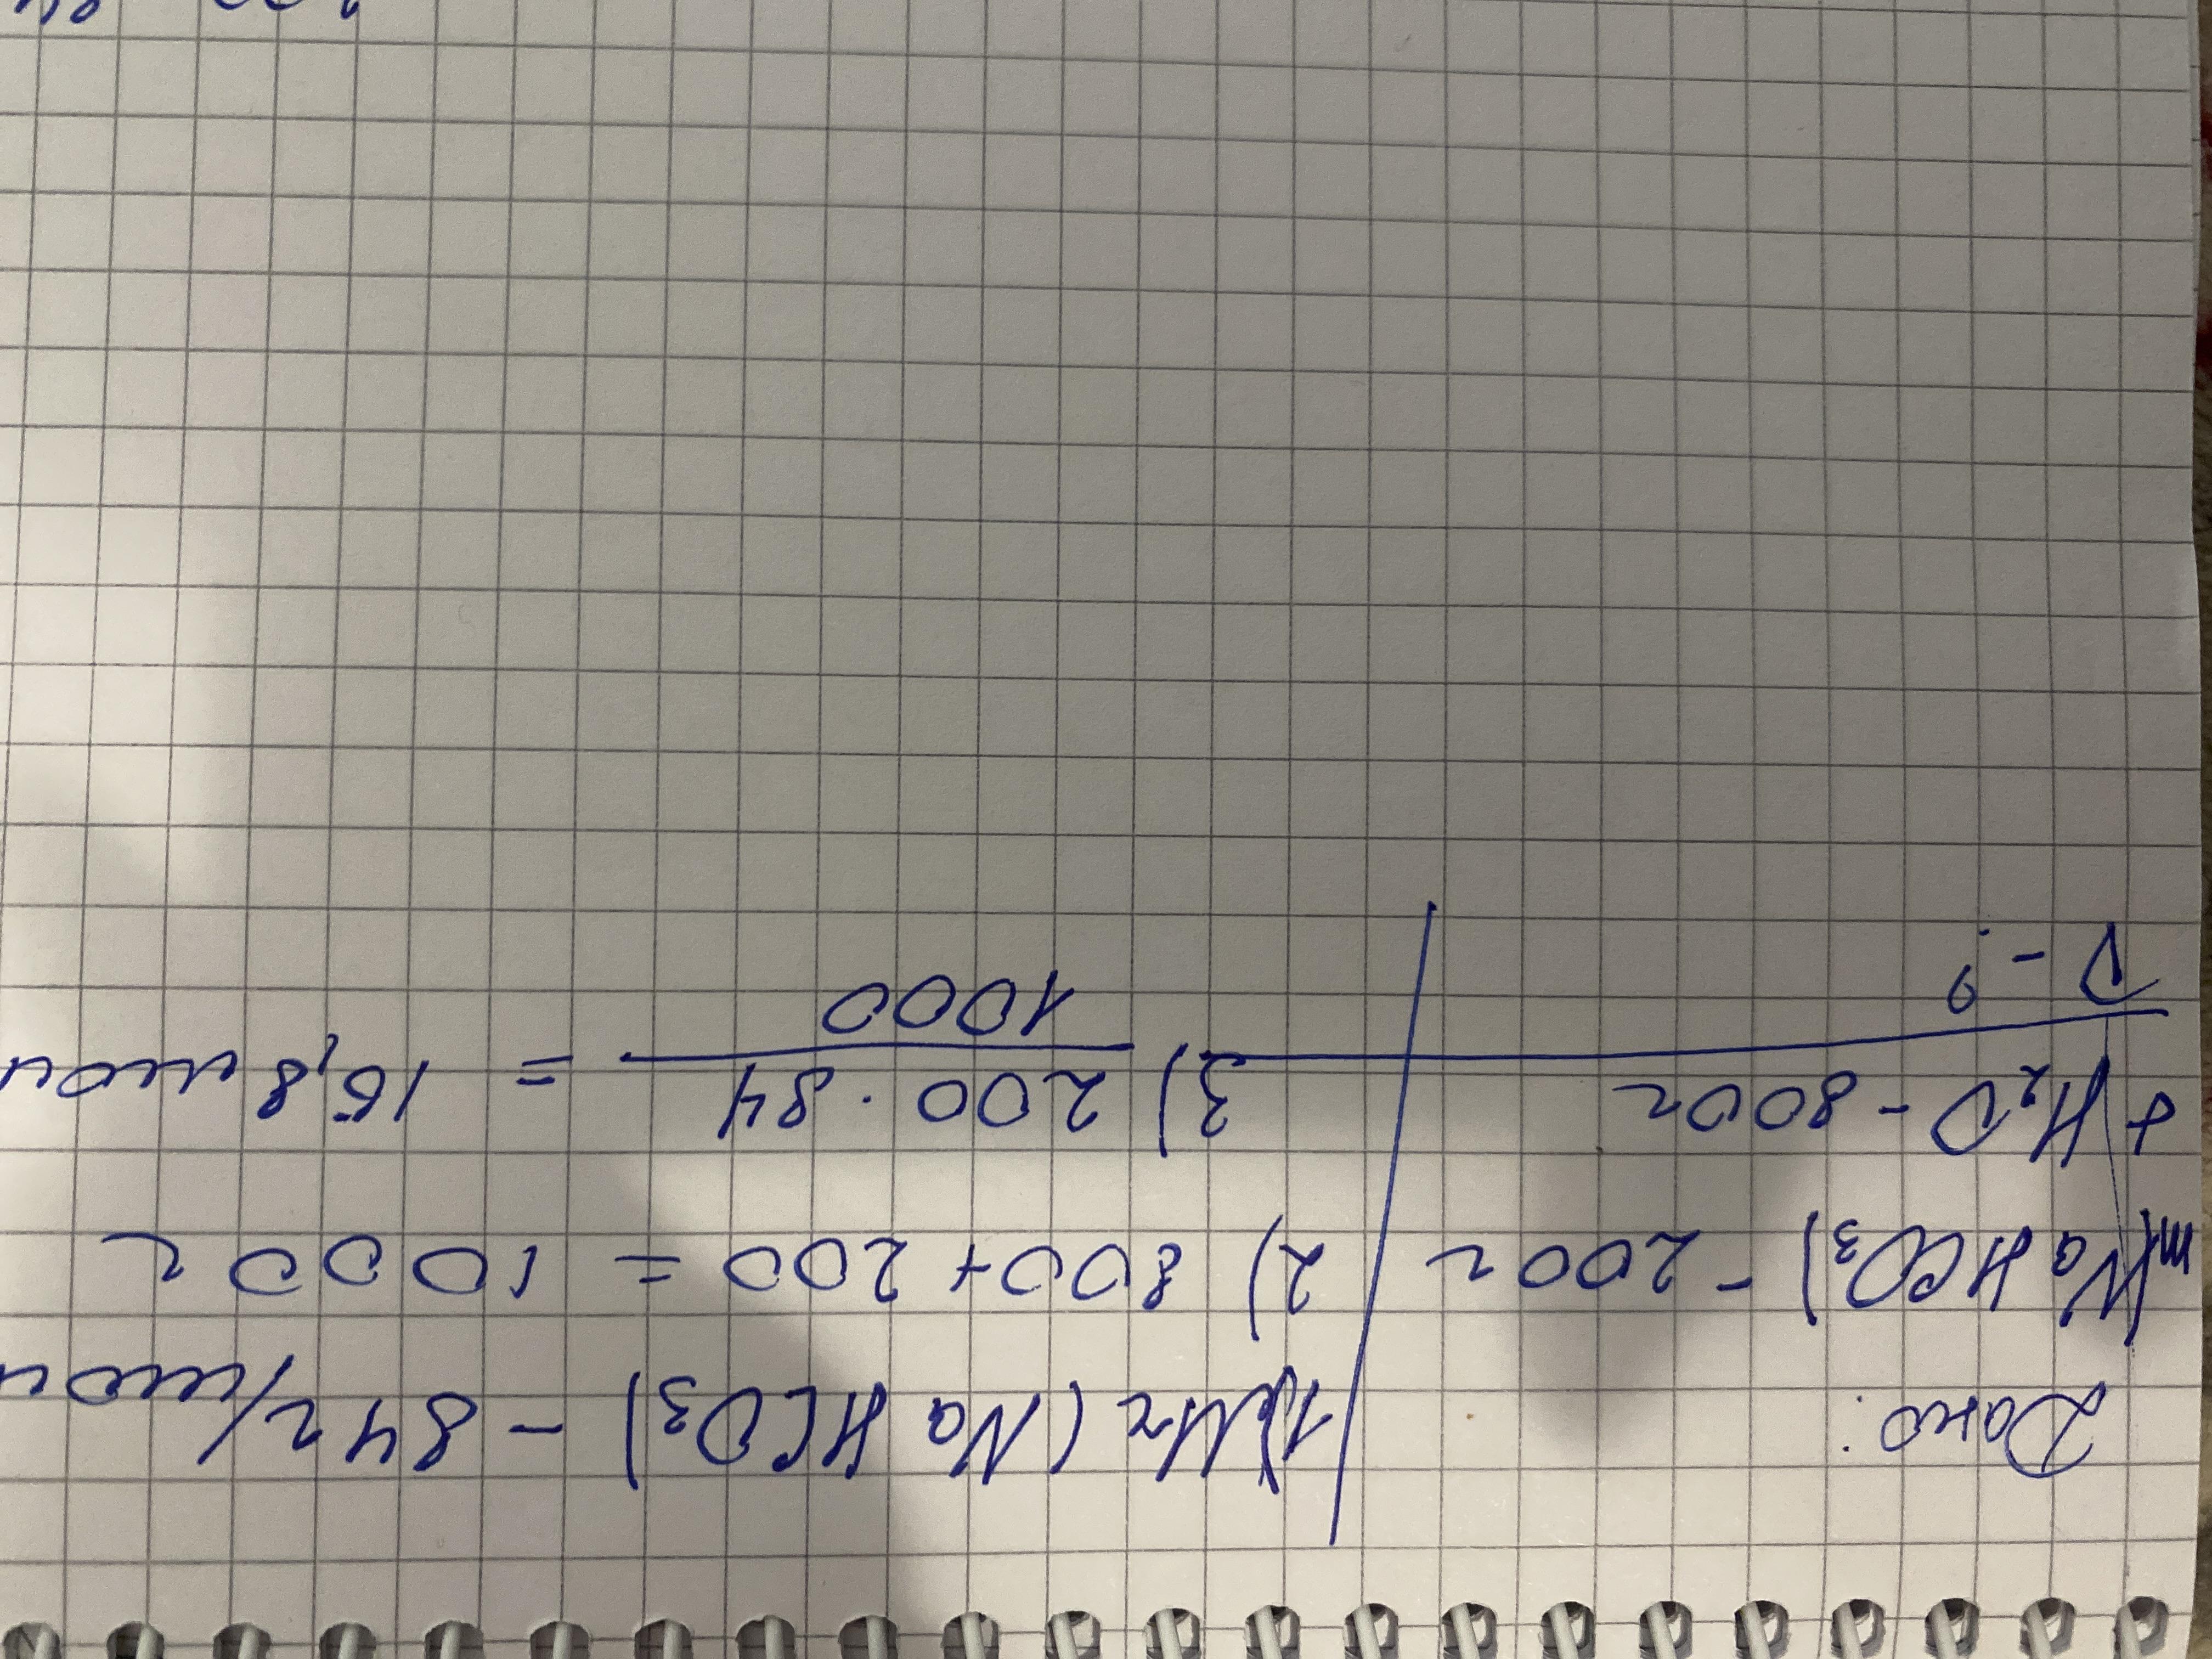 Дано:
m(NaHCO3) - 200г
+ H2O - 800г
V - ?
1) Mr (NaHCO3) - 84г/моль
2) 800 + 200 = 1000г
3) 200 · 84 / 1000 = 16,8 моль